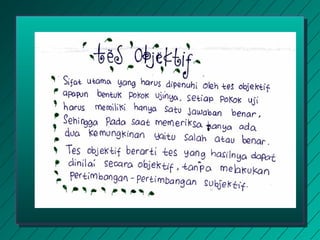 tes Objektif
Sifat utama yang harus dipenuhi oleh tes objektif
apapun bentuk pokok ujinya, setiap pokok uji
harus memiliki hanya satu jawaban benar,
Sehingga pada saat memeriksa hanya ada
dua kemungkinan yaitu salah atau benar.
Tes objektif berarti tes yang hasilnya dapat
dinilai secara objektif, tanpa melakukan
pertimbangan-pertimbangan subjektif.